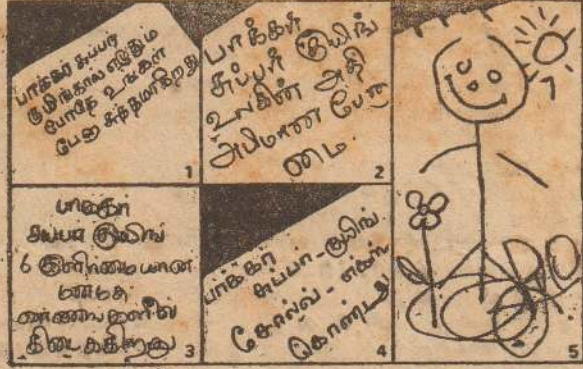 பார்க்கர் சுப்பர்
குயிங்கால எழுதும்
போதே உங்கள்
பேனா சுத்தமாகிறது
1
பார்க்கர்
சுப்பர் குயிங்
உலகின் அதி
அபிமான பேனா
மை.
2
பார்க்கர்
சுப்பர் குயிங்
6 இனிமையான
வண்ணங்களில்
கிடைக்கிறது
3
பார்க்கர்
சுப்பர் - குயிங்
சோல்வ் - எக்ஸ்
கொண்டது
4
5